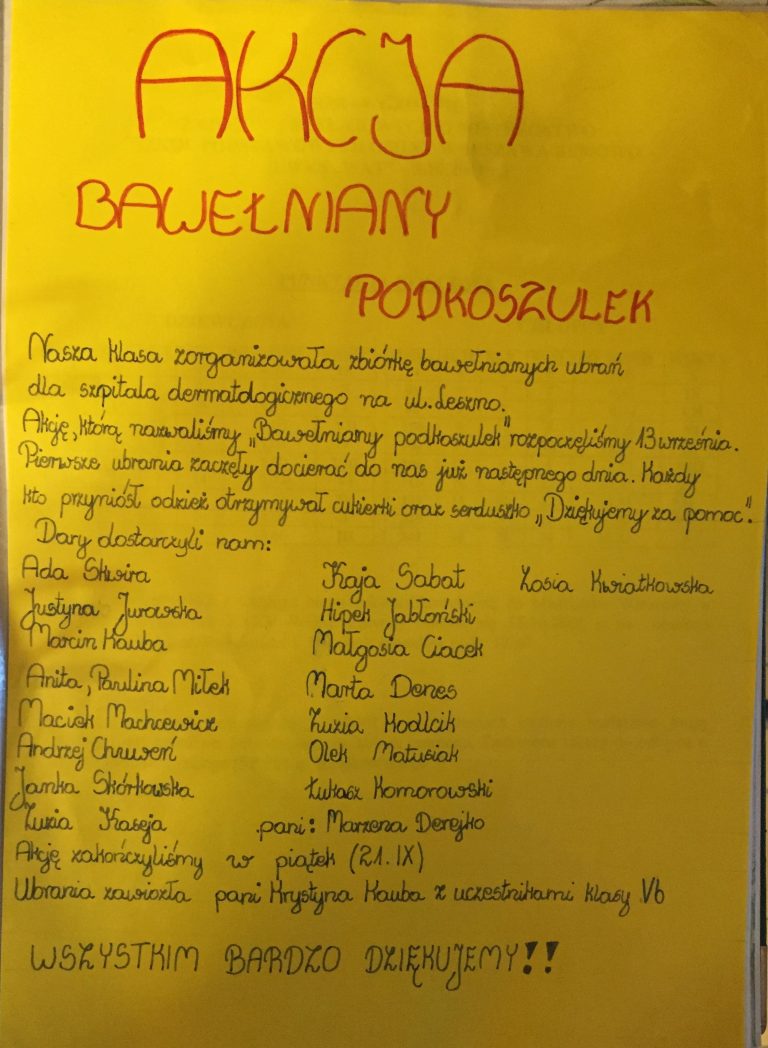 AKCJA
BAWEŁNIANY
PODKOSZULEK
Nasza klasa zorganizowała zbiórkę bawełnianych ubrań
dla szpitala dermatologicznego na ul. Leszno.
Akcję, którą nazwaliśmy „Bawełniany podkoszulek” rozpoczęliśmy 13 września.
Pierwsze ubrania zaczęły docierać do nas już następnego dnia. Każdy
kto przyniósł odzież otrzymywał cukierki oraz serduszko „Dziękujemy za pomoc”.
Dary dostarczyli nam:
Ada Skwira Kaja Sabat Zosia Kwiatkowska
Justyna Jurowska Hipek Jabłoński
Marcin Kauba Małgosia Ciacek
Anita, Paulina Miłek Marta Denes
Maciek Machcewicz Zuzia
Andrzej Chruweń Olek Matusiak
Janka Skórkowska Łukasz Komorowski
Zuzia Kaseja pani: Marzena Derejko
Akcję zakończyliśmy w piątek (21.IX)
Ubrania zawiozła pani Krystyna Kauba z uczestnikami klasy Vb
WSZYSTKIM BARDZO DZIĘKUJEMY!!